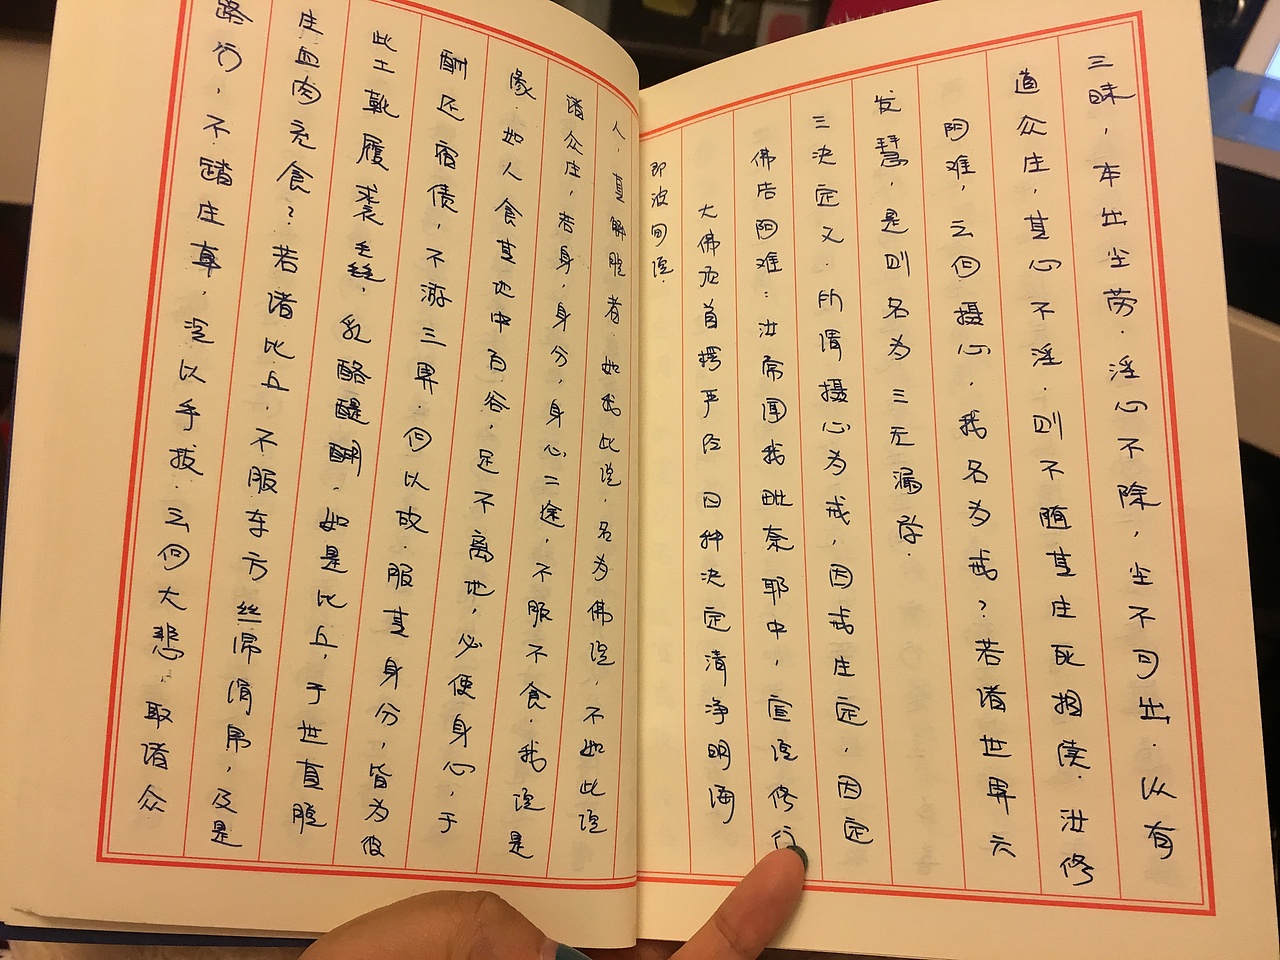 路行，不蹋生草，况以手拔．云何大悲，取诸众
生血肉充食？若诸比丘，不服东方丝绵绢帛，及是
此土靴履裘毛丝，乳酪醍醐．如是比丘，于世真脱
酬还宿债，不游三界．何以故．服其身分，皆为彼
缘．如人食其地中百谷，足不离地，必使身心，于
诸众生，若身，身分，身心二途，不服不食．我说是
人，真解脱者．如我此说，名为佛说，不如此说
即波旬说．
大佛顶首楞严经 四种决定清净明诲
佛告阿难：汝常闻我毗奈耶中，宣说修行
三决定义．所谓摄心为戒，因戒生定，因定
发慧，是则名为三无漏学．
阿难，云何摄心，我名为戒？若诸世界六
道众生，其心不淫．则不随其生死相续．汝修
三昧，本出尘劳．淫心不除，尘不可出．从有